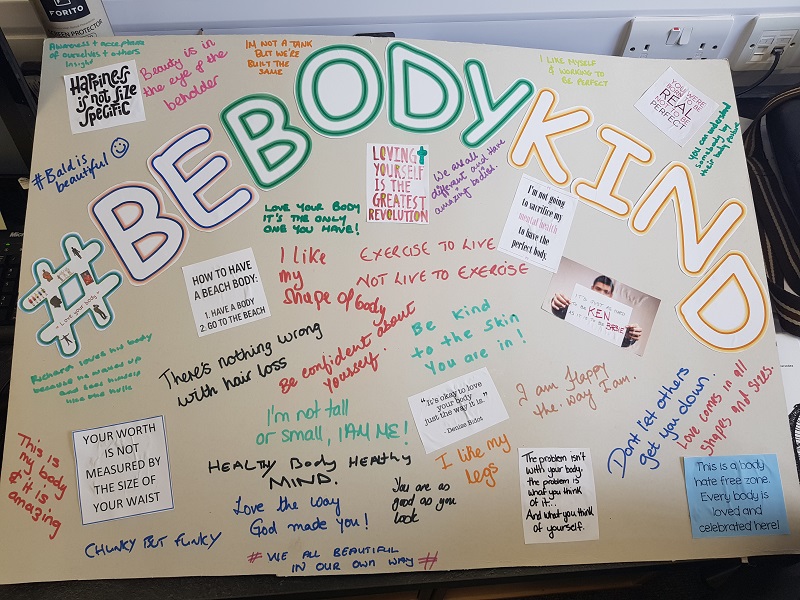 FORITO
SCREEN PROTECTOR
Awareness + acceptance
of ourselves + others
Insight
Happiness
is not size
specific
Beauty is in
the eye of the
beholder
I'M NOT A TANK
BUT WE'RE
BUILT THE
SAME
I LIKE MYSELF
& WORKING TO
BE PERFECT
YOU WERE
BORN TO BE
REAL
NOT TO BE
PERFECT
you can understand
somebody by
their body posture
#Bald is
beautiful
#BEBODYKIND
Love your body
LOVING
YOURSELF
IS THE
GREATEST
REVOLUTION
We are all
different and have
amazing bodies.
LOVE YOUR BODY
IT'S THE ONLY
ONE YOU HAVE!
I'm not going
to sacrifice my
mental health
to have the
perfect body.
HOW TO HAVE
A BEACH BODY:
1. HAVE A BODY
2. GO TO THE BEACH
I like
my
shape of body
EXERCISE TO LIVE
NOT LIVE TO EXERCISE
IT'S JUST AS HARD
TO BE KEN
AS IT IS TO BE BARBIE
Richard loves his body
because he wakes up
and sees himself
like the hulk
There's nothing wrong
with hair loss
Be confident about
yourself.
Be kind
to the skin
you are in!
"It's okay to love
your body
just the way it is."
-Denise Bidot
I am Happy
the way I am.
Dont let others
get you down.
Love comes in all
shapes and sizes.
I'm not tall
or small, I AM ME!
This is
my body
& it is
amazing
YOUR WORTH
IS NOT
MEASURED BY
THE SIZE OF
YOUR WAIST
HEALTHY BODY HEALTHY
MIND.
I like my
legs
You are as
good as you
look
The problem isn't
with your body.
the problem is
what you think
of it...
And what you think
of yourself.
This is a body
hate free zone.
Every body is
loved and
celebrated here!
Love the way
God made you!
CHUNKY BUT FUNKY
# WE ALL BEAUTIFUL
IN OUR OWN WAY #